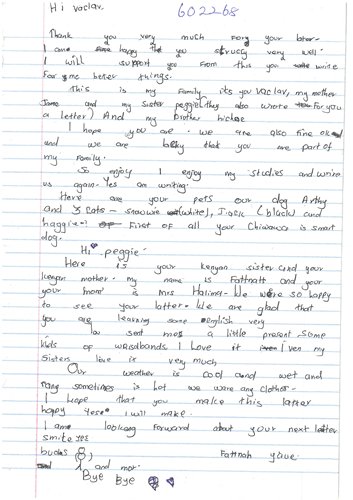 Hi vaclav.
602268
Thank you very much for your letter.
I am happy that you study very well.
I will support you from this you write
For me better things.
This is my Family its you vaclav, my mother
Jane and my sister peggie(they also wrote for you
a letter) And my brother
I hope you are. we are also fine
and we are lucky that you are part of
my Family.
So enjoy I enjoy my studies and write
us again. Yes am writing.
Here are your pets our dog
and 3 cats - snowie (white), Jack (black) and
haggie - First of all your Chiwawa is smart
dog.
Hi peggie.
Here is your kenyan sister and your
kenyan mother. my name is Fattnatt and your
your mom is Mrs Halima. We were so happy
to see your latter. We are glad that
you are learning some english very
sent me a little present some
kids of wristbands I Love it I ven my
Sisters love is very much
Our weather is cool and wet and
sometimes is hot we were any clother.
I hope that you make this latter
happy I will make.
I am looking forward about your next latter
smile yee
buds 8, Fattnah
and mor.
Bye Bye